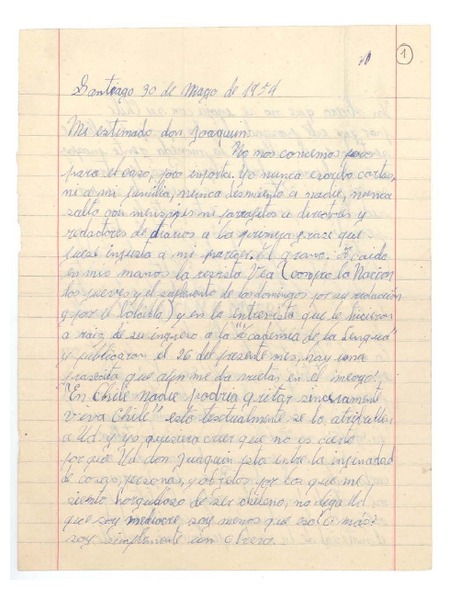 1
Santiago 30 de Mayo de 1954
Mi estimado don Joaquin:
No nos conosemos pero
para el caso, poco importa. Yo nunca escribo cartas,
ni a mi familia, nunca desmiento a nadie, nunca
salto con mensajes ni parrafitos a directores y
redactores de diarios a la primera frase que
fuese injusta a mi pareser, o grave. A caido
en mis manos la revista Vea (compro la Nacion
los jueves y el suplemento de los domingos por su redaccion
y por ) y en la intrevista que le hicieron
a raiz de su ingreso a la "academia de la Lengua"
y publicaron el 26 del presente mes, hay una
frasesita que aun me da vueltas en el meoyo:
"En Chile nadie podria gritar sinceramente
viva Chile" esto testualmente se lo atribullen
a Ud y yo quisiera creer que no es cierto
porque Ud don Juaquin esta entre la infinidad
de cosas, personas, y objetos por los que me
siento horgulloso de ser chileno, no diga Ud
que soy mediocre, soy menos que eso o más:
soy simplemente un obrero.